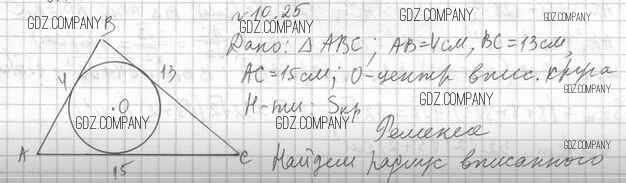 №10.25
Дано: △ABC; AB=4см, BC=13см,
AC=15см; O-центр впис. круга
Н-ти: Sкр
Решение
Найдем радиус вписанного
B
4
13
O
A
15
C
GDZ.COMPANY
GDZ.COMPANY
GDZ.COMPANY
GDZ.COMPANY
GDZ.COMPANY
GDZ.COMPANY
GDZ.COMPANY
GDZ.COMPANY
GDZ.COMPANY